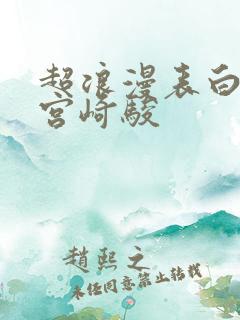 超浪漫表白
宫崎骏
赵熙之
未经同意禁止转载